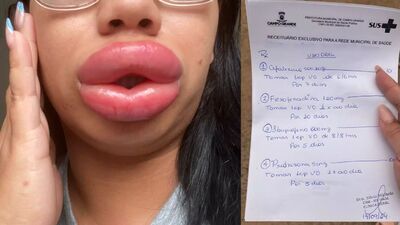 CAMPO GRANDE
PREFEITURA MUNICIPAL DE CAMPO GRANDE
SUS
RECEITUÁRIO EXCLUSIVO PARA A REDE MUNICIPAL DE SAÚDE
USO ORAL
① Cefalexina 500mg
Tomar 1cp VO de 6/6 hrs
Por 7 dias
② Fexofenadina 120mg
Tomar 1cp VO 1x ao dia
Por 10 dias
③ Ibuprofeno 600mg
Tomar 1cp VO de 8/8 hrs
Por 5 dias
④ Prednisona 5mg
Tomar 1cp VO 1x ao dia
Por 5 dias